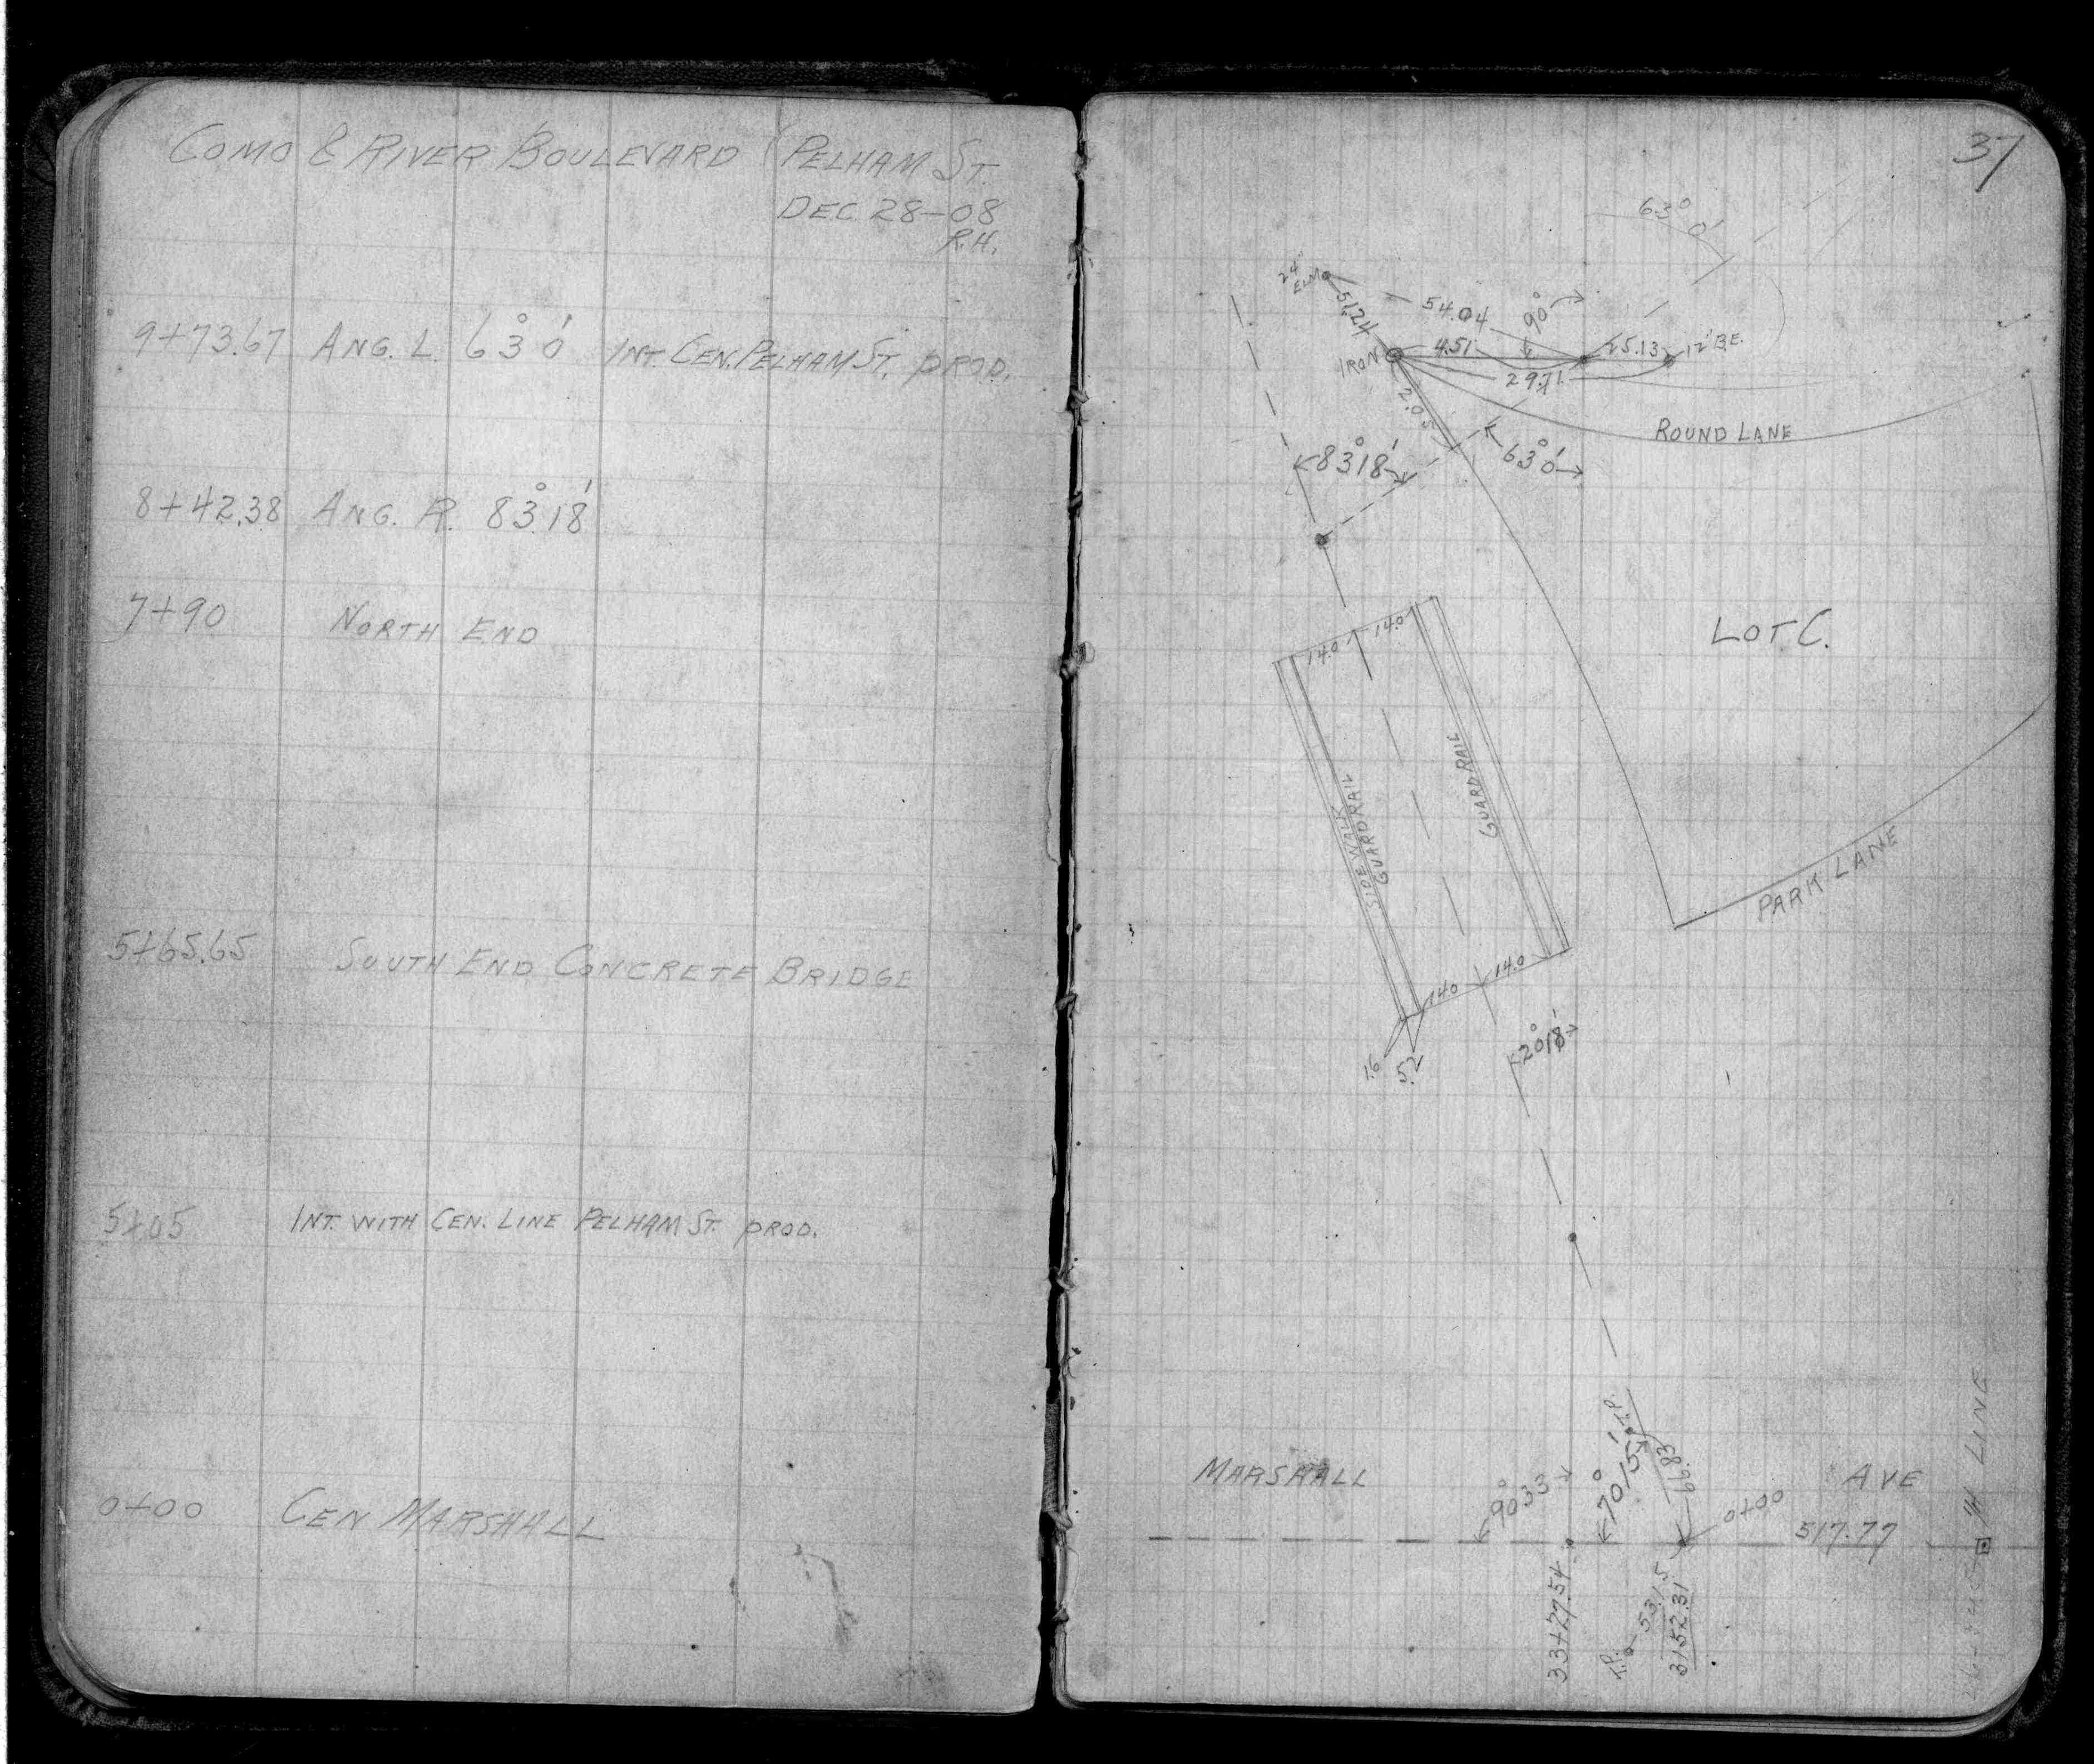 COMO & RIVER BOULEVARD (PELHAM ST.
DEC. 28-08
R.H.
9+73.67 ANG. L. 63° 0' INT. CEN. PELHAM ST. PROD.
8+42.38 ANG. R. 83° 18'
7+90 NORTH END
5+65.65 SOUTH END CONCRETE BRIDGE
5+05 INT. WITH CEN. LINE PELHAM ST. PROD.
0+00 CEN MARSHALL
37
63° 0'
24" ELM
51.24
54.04
90°
IRON
4.51
25.13
12" B.E.
29.71
2.05
ROUND LANE
83° 18'
63° 0'
14.0
14.0
LOT C.
SIDEWALK
GUARDRAIL
GUARDRAIL
PARK LANE
14.0
14.0
1.6
5.2
20° 18'
MARSHALL
90° 33'
70° 15'
T.P.
66.83
0+00
AVE
517.77
33+27.54
T.P.
53.15
31+52.31
LINE